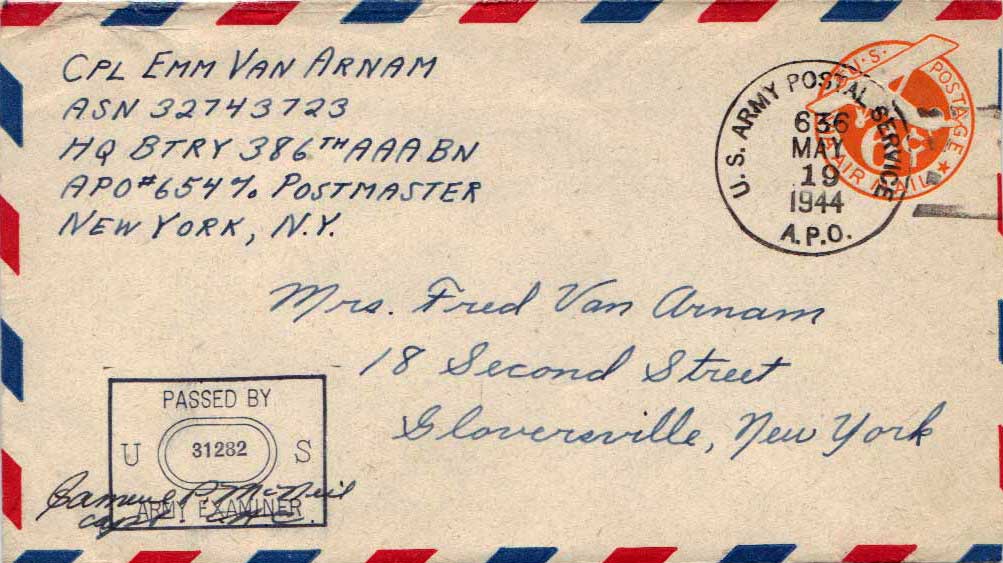 CPL EMM VAN ARNAM
ASN 32743723
HQ BTRY 386TH AAA BN
APO #654 % POSTMASTER
NEW YORK, N.Y.
U.S. ARMY POSTAL SERVICE
636
MAY
19
1944
A.P.O.
U.S. POSTAGE
6¢
AIR MAIL
Mrs. Fred Van Arnam
18 Second Street
Gloversville, New York
PASSED BY
U 31282 S
ARMY EXAMINER
Samuel P. McNeil
Capt